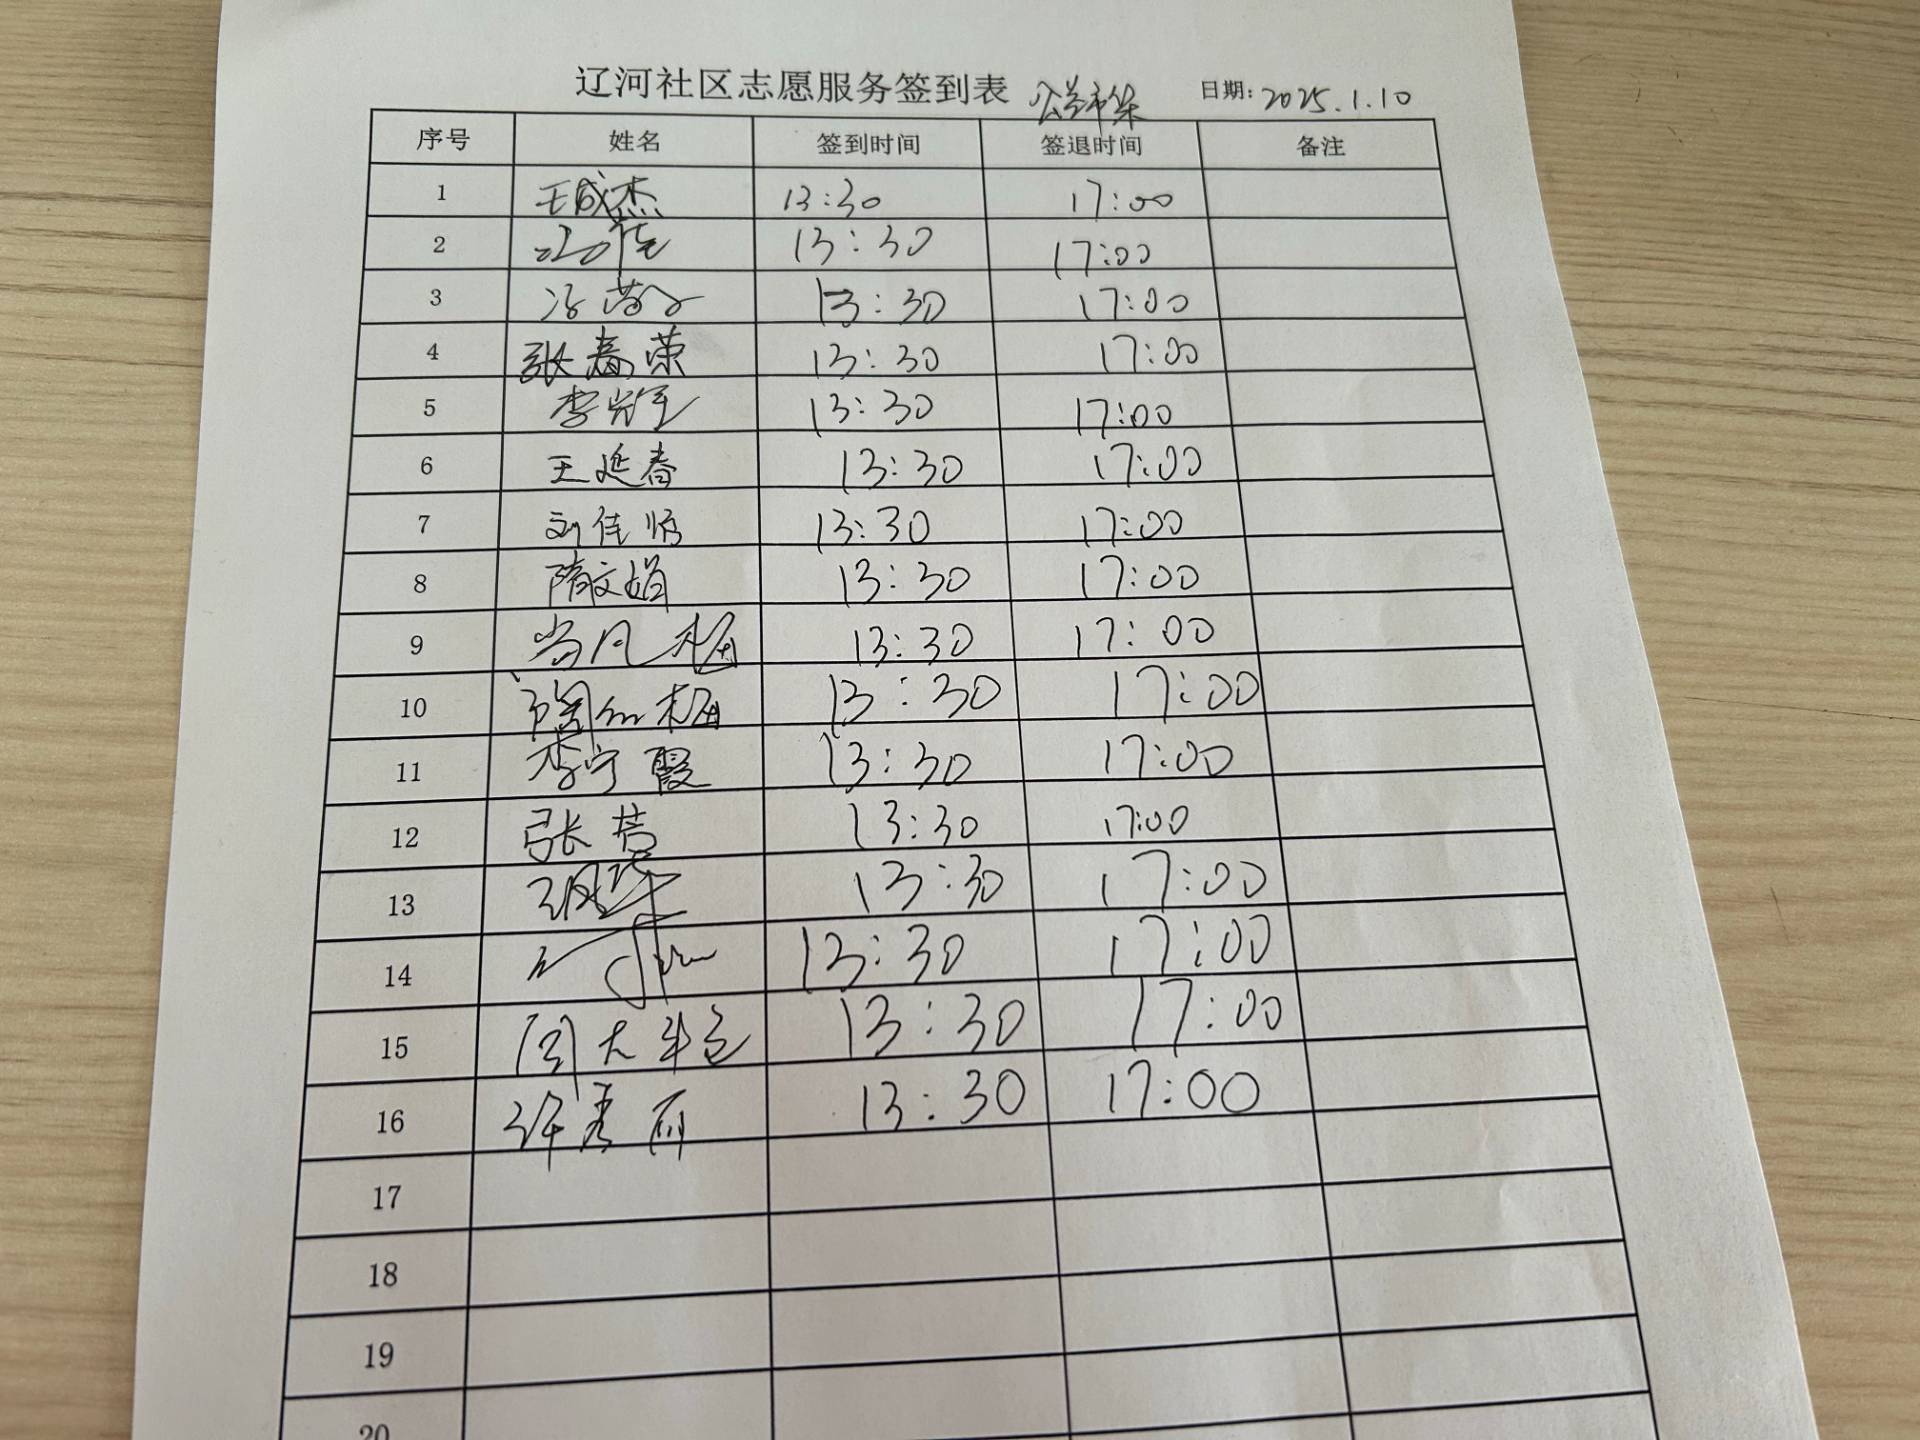 辽河社区志愿服务签到表 公益市集 日期: 2025.1.10
序号 姓名 签到时间 签退时间 备注
1 王成杰 13:30 17:00
2 13:30 17:00
3 13:30 17:00
4 张春荣 13:30 17:00
5 13:30 17:00
6 王延春 13:30 17:00
7 刘佳 13:30 17:00
8 隋文娟 13:30 17:00
9 13:30 17:00
10 13:30 17:00
11 李宁霞 13:30 17:00
12 张芳 13:30 17:00
13 13:30 17:00
14 13:30 17:00
15 13:30 17:00
16 许秀丽 13:30 17:00
17
18
19
20